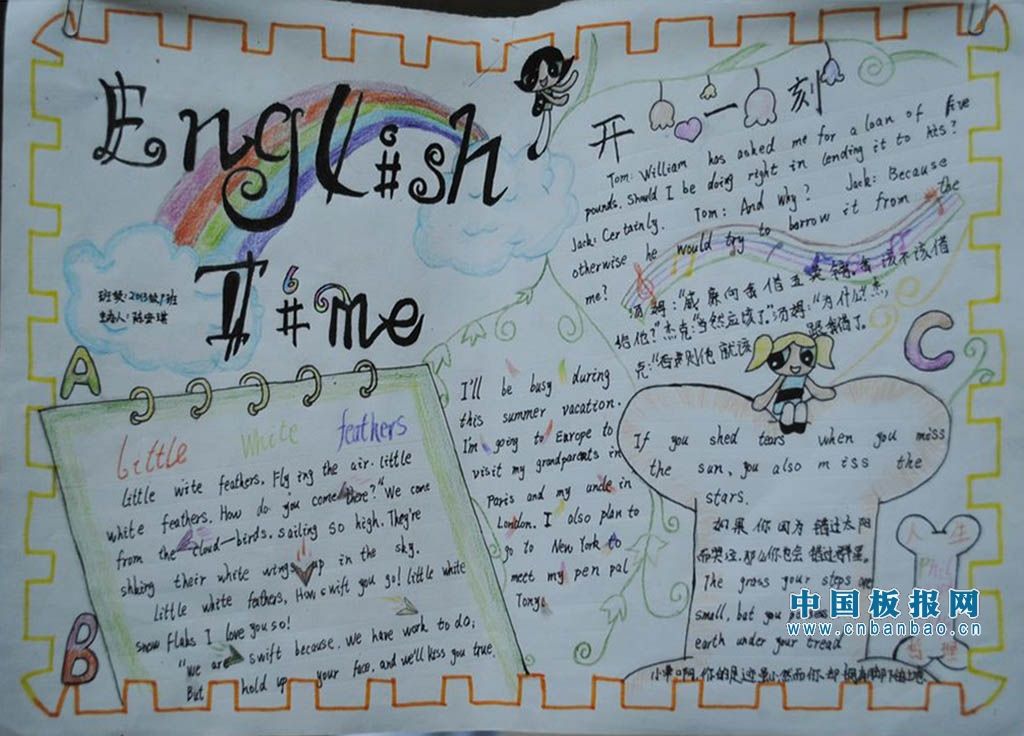 English
Time
班级: 2013级1班
开心一刻
Tom: William has asked me for a loan of five
pounds. Should I be doing right in lending it to his?
Jack: Certainly. Tom: And Why? Jack: Because
otherwise he would try to borrow it from the
me?
汤姆:“威廉向我借五英镑,我该不该借
给他?”杰克:“当然应该了。”汤姆:“为什么?”杰
克:“否则他就该跟我借了。
A
B
C
Little White feathers
little wite feathers. Fly ing the air. little
white feathers. How do you come there?" We come
from the cloud-birds. sailing so high. They're
shking their white wings up in the sky.
Little white fathers, How swift you go! little white
snow flaks I love you so!
"we are swift because. we have work to do;
But hold up your face, and we'll kiss you true.
I'll be busy during
this summer vacation.
I'm going to Europe to
visit my grandparents in
Paris and my uncle in
London. I also plan to
go to New York to
meet my pen pal
Tony.
If you shed tears when you miss
the sun, you also miss the
stars.
如果你因为错过太阳
而哭泣,那么你也会错过群星。
The grass your steps are
small, but you
earth under your tread
小草啊,你的足迹虽小然而你却拥有脚下的土地
人生
哲理
中国板报网
www.cnbanbao.cn